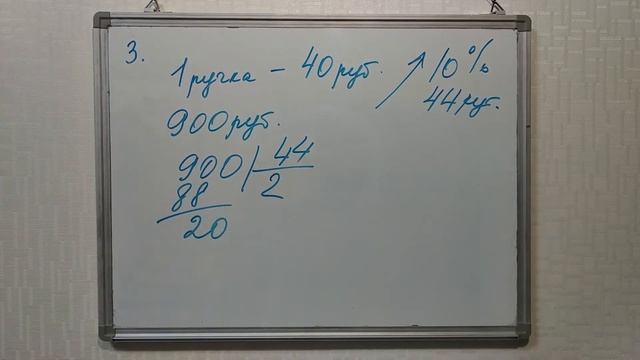 3.
1 ручка - 40 руб. ↗ 10%
44 руб.
900 руб.
900 | 44
88 2
20